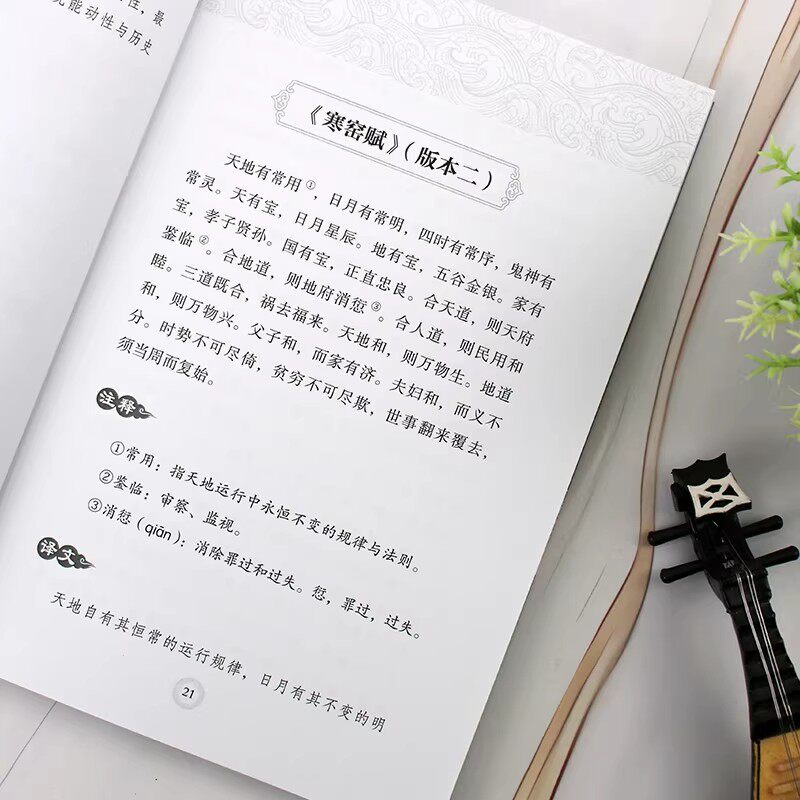 性，最
能动性与历史
《寒窑赋》（版本二）
天地有常用①，日月有常明，四时有常序，鬼神有
常灵。天有宝，日月星辰。地有宝，五谷金银。家有
宝，孝子贤孙。国有宝，正直忠良。合天道，则天府
鉴临②。合地道，则地府消愆③。合人道，则民用和
睦。三道既合，祸去福来。天地和，则万物生。地道
和，则万物兴。父子和，而家有济。夫妇和，而义不
分。时势不可尽倚，贫穷不可尽欺，世事翻来覆去，
须当周而复始。
注释
①常用：指天地运行中永恒不变的规律与法则。
②鉴临：审察、监视。
③消愆（qiān）：消除罪过和过失。愆，罪过，过失。
译文
天地自有其恒常的运行规律，日月有其不变的明
21